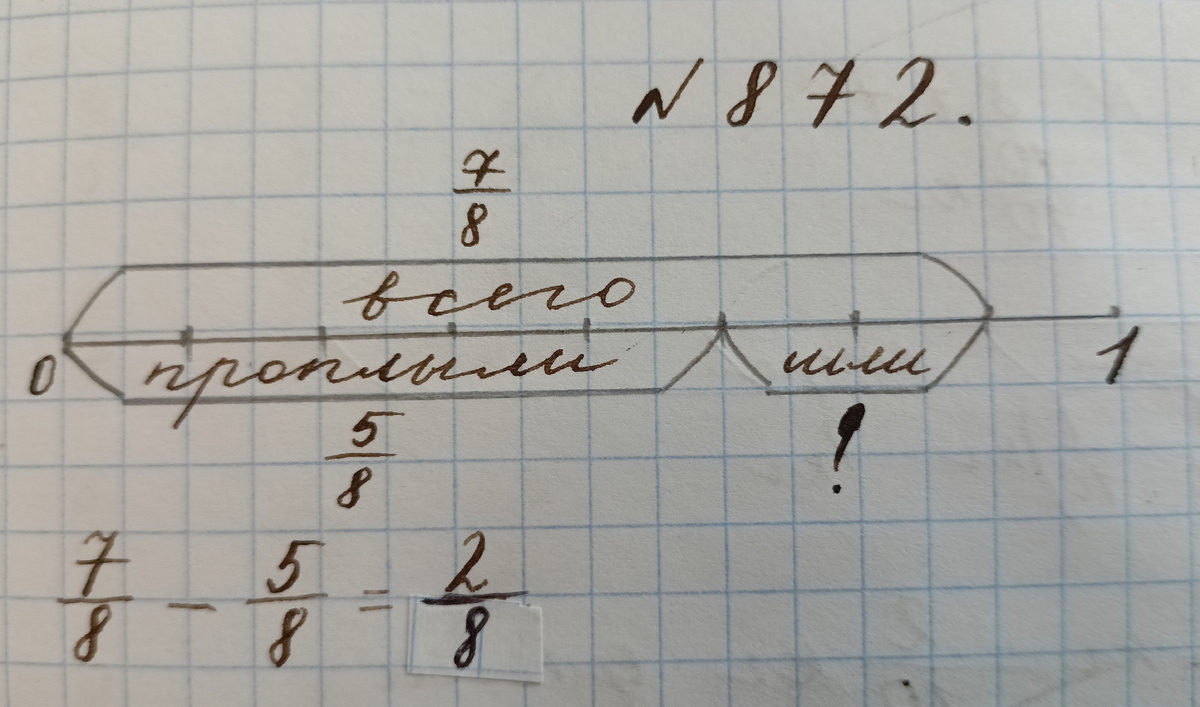 № 872.
7/8
всего
0 проплыли шли 1
5/8 !
7/8 - 5/8 = 2/8